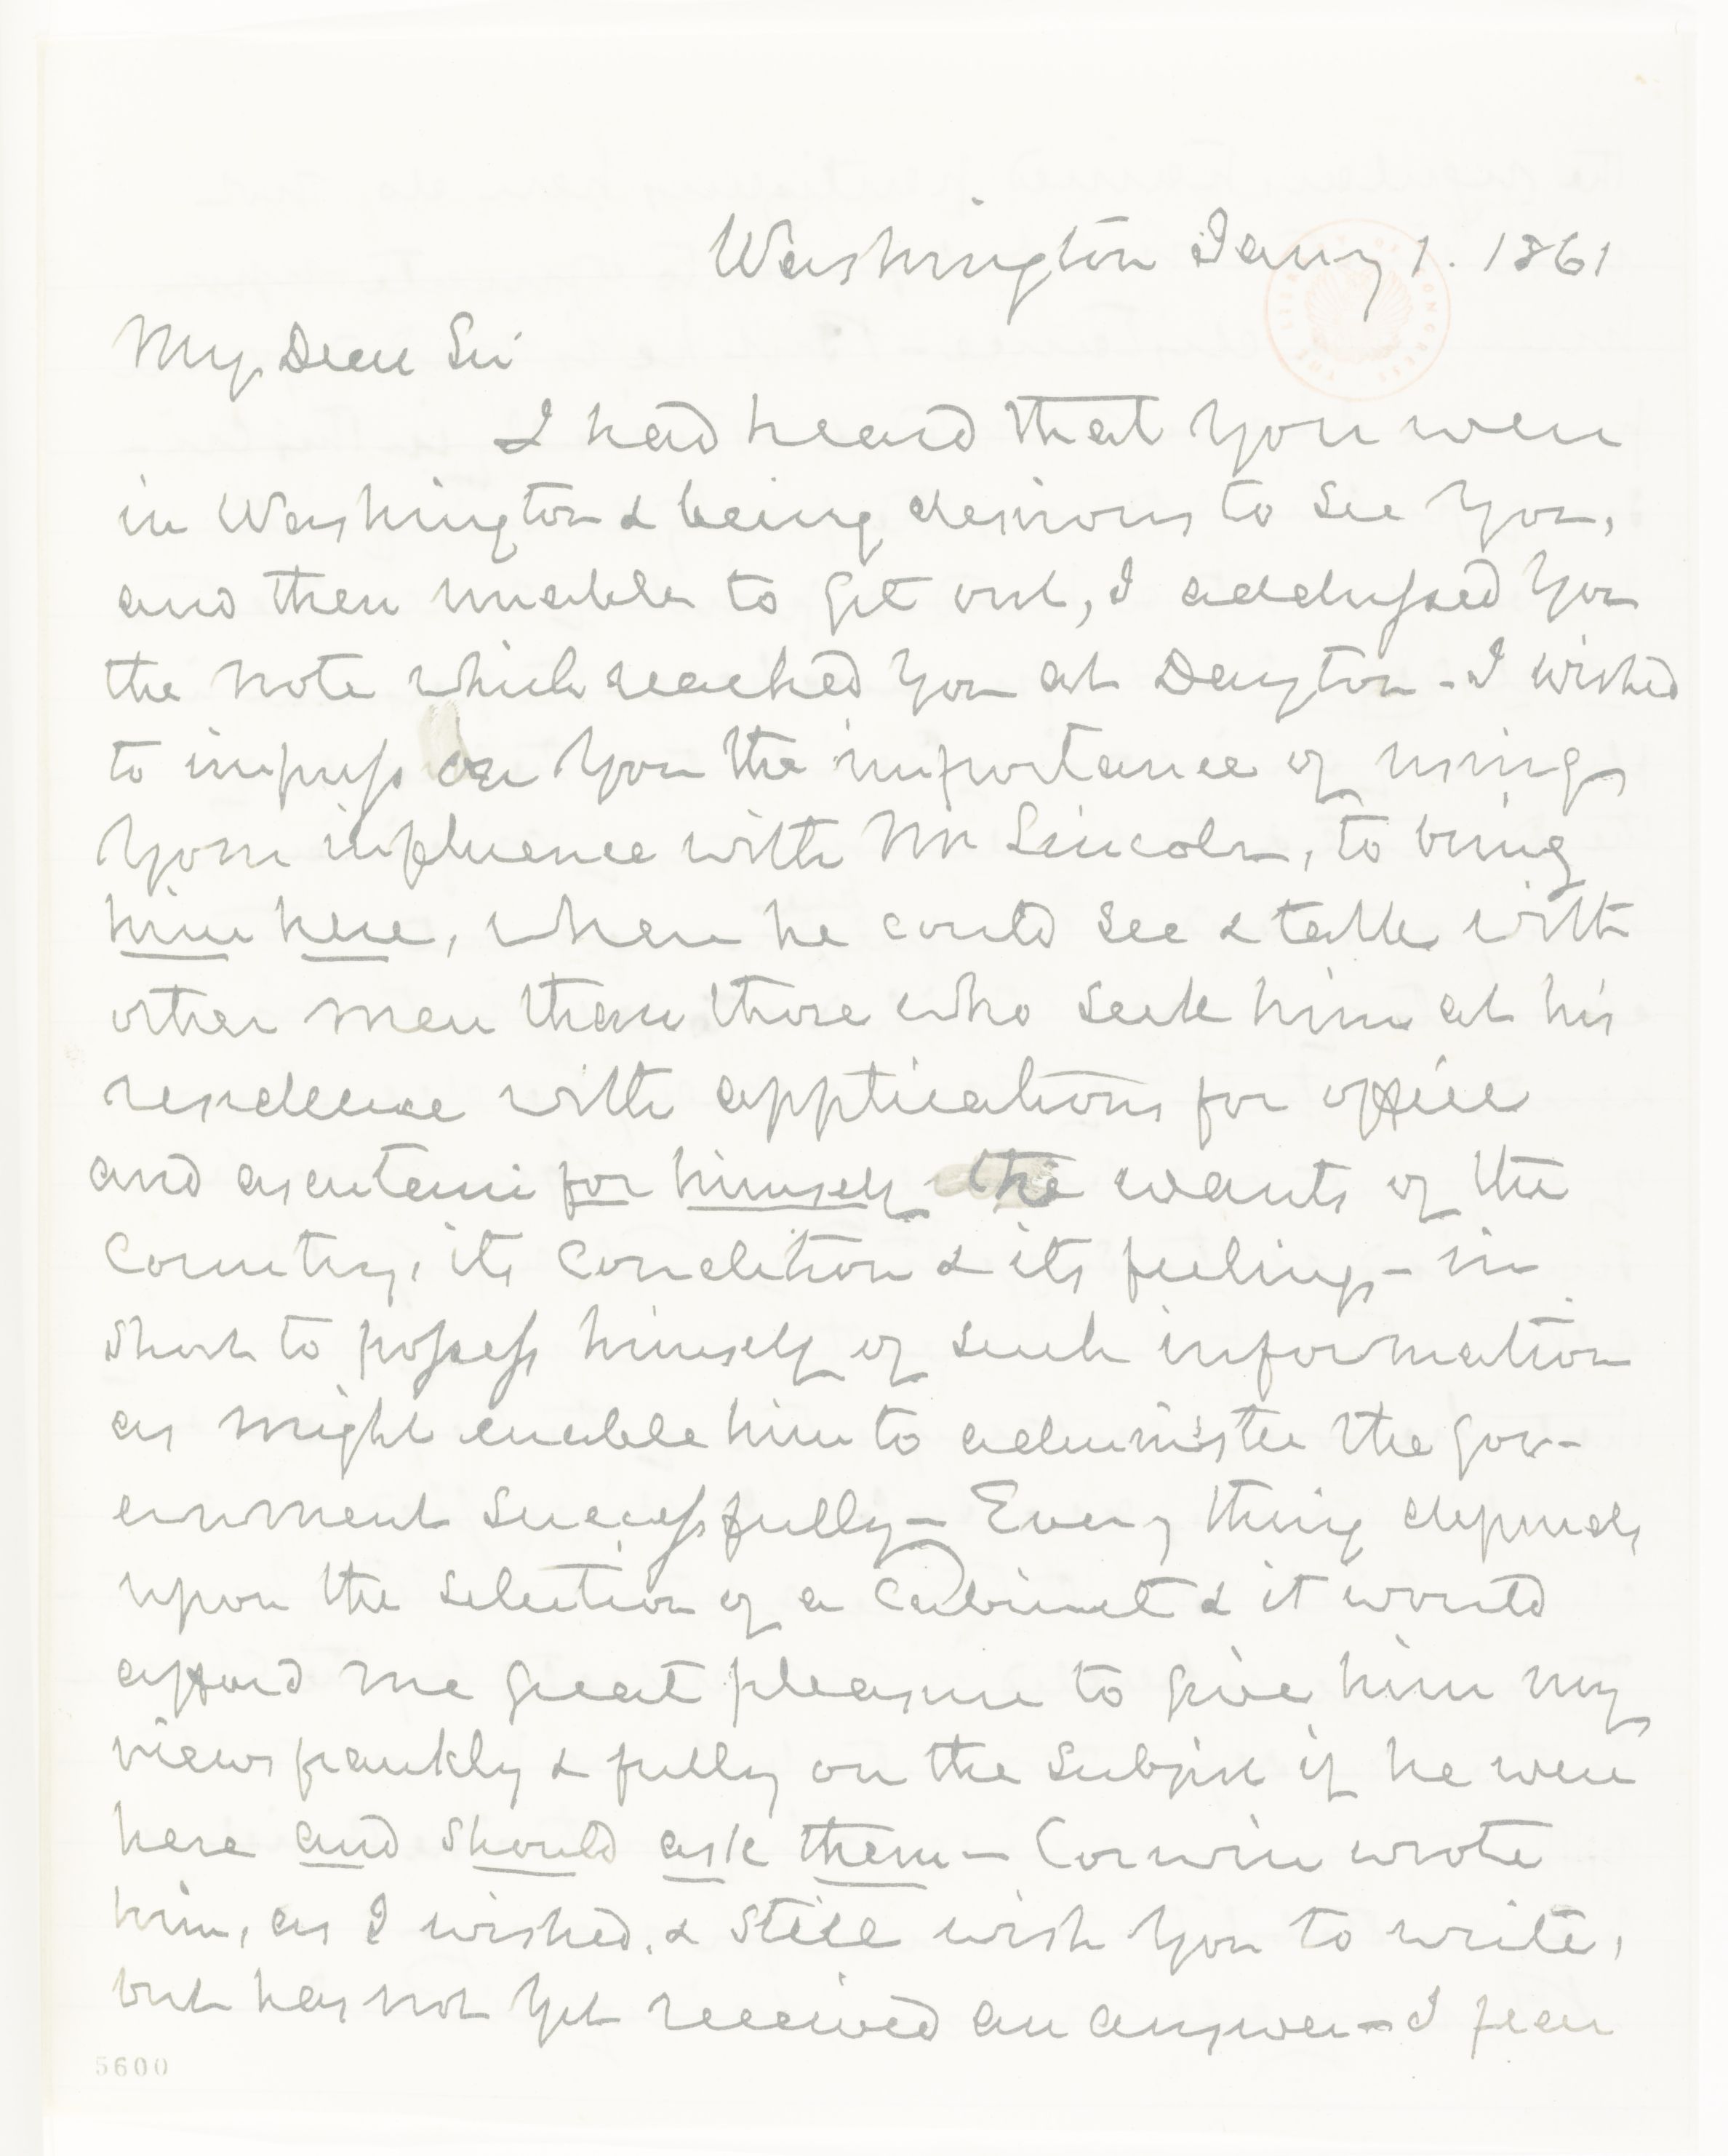 Washington Jany 1. 1861
My Dear Sir
I had heard that you were
in Washington & being desirous to see you,
and then unable to get out, I addressed you
the note which reached you at Dayton - I wished
to impress on you the importance of using
your influence with Mr Lincoln, to bring
him here, where he could see & talk with
other men than those who seek him at his
residence with applications for office
and ascertain for himself the wants of the
Country, its condition & its feelings - in
short to possess himself of such information
as might enable him to administer the gov-
ernment successfully - Every thing depends
upon the selection of a Cabinet & it would
afford me great pleasure to give him my
views frankly & fully on the subject if he were
here and should ask them - Corwin wrote
him, as I wished, & still wish you to write,
but has not yet received an answer - I fear
5600